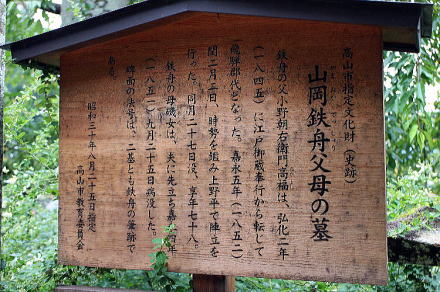 高山市指定文化財(史跡)
山岡鉄舟父母の墓
鉄舟の父小野朝右衛門高福は、弘化二年
(一八四五)に江戸御蔵奉行から転じて
飛騨郡代となった。嘉永五年(一八五二)
閏二月三日、時勢を鑑み上野平で陣立を
行った。同月二十七日没、享年七十八。
鉄舟の母磯女は、夫に先立ち嘉永四年
(一八五一)九月二十五日病没した。
碑面の法号は、二基とも鉄舟の筆跡で
ある。
昭和三十年八月二十五日指定
高山市教育委員会